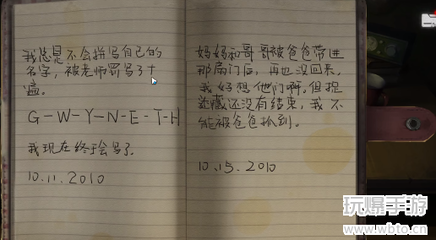 我总是不会拼写自己的
名字，被老师罚写了十
遍。
G-W-Y-N-E-T-H
我现在终于会写了。
10.11.2010
妈妈和哥哥被爸爸带进
那扇门后，再也没回来。
我好想他们啊。但捉
迷藏还没有结束，我不
能被爸爸抓到。
10.15.2010
玩爆手游
www.wbto.cn